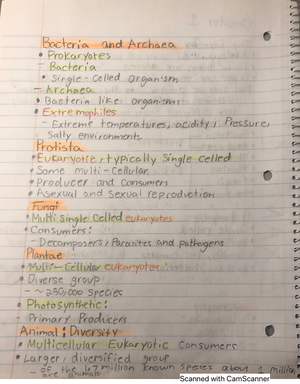 Bacteria and Archaea
• Prokaryotes
- Bacteria
• Single-celled organism
- Archaea
• Bacteria like organisms
• Extremophiles
- Extreme temperatures, acidity, Pressure,
Salty environments
Protista
• Eukaryotic, typically Single celled
• Some multi-cellular
• Producer and Consumers
• Asexual and Sexual reproduction
Fungi
• Multi Single Celled eukaryotes
• Consumers:
- Decomposers, Parasites and pathogens
Plantae
• Multi-Cellular eukaryotes:
• Diverse group:
- ~ 250,000 species
• Photosynthetic:
• Primary Producers
Animal: Diversity
• Multicellular Eukaryotic Consumers
• Larger, diversified group
- Of the 1.7 million known species about 1
are animals
Scanned with CamScanner